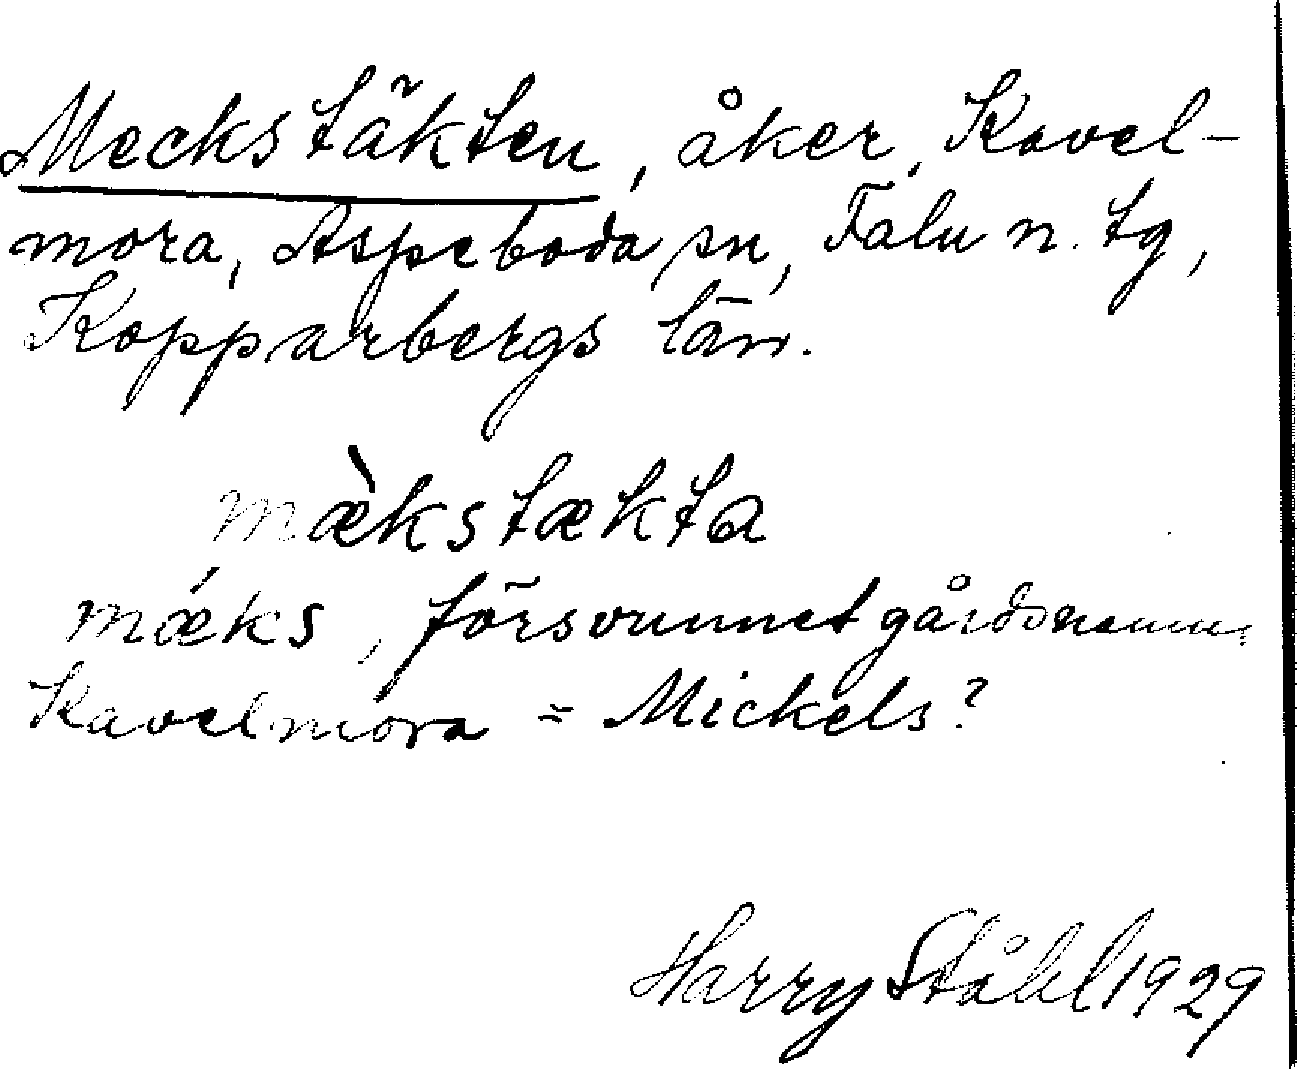 Meckstäkten, åker, Kavel-
mora, Aspeboda sn, Falu n. tg,
Kopparbergs län.
mæ̀kstækta
mǽks, försvunnet gårdsnamn,
Kavelmora = Mickels?
Harry Ståhl 1929